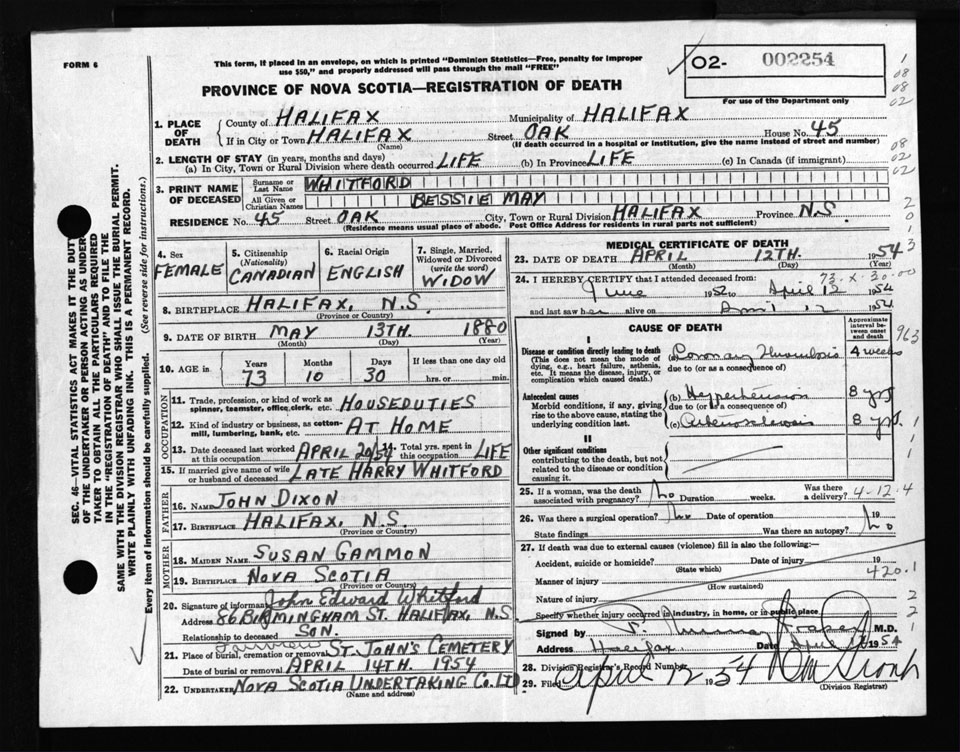 FORM 6
This form, if placed in an envelope, on which is printed "Dominion Statistics—Free, penalty for improper
use $50," and properly addressed will pass through the mail "FREE"
O2- 002254
For use of the Department only
PROVINCE OF NOVA SCOTIA—REGISTRATION OF DEATH
1. PLACE OF DEATH
County of HALIFAX Municipality of HALIFAX
If in City or Town HALIFAX Street OAK House No. 45
(Name) (If death occurred in a hospital or institution, give the name instead of street and number)
2. LENGTH OF STAY (in years, months and days)
(a) In City, Town or Rural Division where death occurred LIFE (b) In Province LIFE (c) In Canada (if immigrant)
3. PRINT NAME OF DECEASED
Surname or Last Name WHITFORD
All Given or Christian Names BESSIE MAY
RESIDENCE No. 45 Street OAK City, Town or Rural Division HALIFAX Province N.S.
(Residence means usual place of abode. Post Office Address for residents in rural parts not sufficient)
4. Sex FEMALE
5. Citizenship (Nationality) CANADIAN
6. Racial Origin ENGLISH
7. Single, Married, Widowed or Divorced (write the word) WIDOW
8. BIRTHPLACE HALIFAX, N.S.
(Province or Country)
9. DATE OF BIRTH MAY 13TH. 1880
(Month) (Day) (Year)
10. AGE in Years 73 Months 10 Days 30 If less than one day old hrs. or min.
OCCUPATION
11. Trade, profession, or kind of work as spinner, teamster, office clerk, etc. HOUSEDUTIES
12. Kind of industry or business, as cotton-mill, lumbering, bank, etc. AT HOME
13. Date deceased last worked at this occupation APRIL 20/54 14. Total yrs. spent in this occupation LIFE
15. If married give name of wife or husband of deceased LATE HARRY WHITFORD
FATHER
16. NAME JOHN DIXON
17. BIRTHPLACE HALIFAX, N.S.
(Province or Country)
MOTHER
18. MAIDEN NAME SUSAN GAMMON
19. BIRTHPLACE NOVA SCOTIA
(Province or Country)
20. Signature of informant John Edward Whitford
Address 86 BIRMINGHAM ST. HALIFAX, N.S
Relationship to deceased SON.
21. Place of burial, cremation or removal Fairview ST. JOHN'S CEMETERY
Date of burial or removal APRIL 14TH. 1954
22. UNDERTAKER NOVA SCOTIA UNDERTAKING CO. LTD
(Name and address)
MEDICAL CERTIFICATE OF DEATH
23. DATE OF DEATH APRIL 12TH. 1954
(Month) (Day) (Year)
73-X-30-00
24. I HEREBY CERTIFY that I attended deceased from:
June 1952 to April 12 1954
and last saw her alive on April 12 1954
CAUSE OF DEATH
Approximate interval between onset and death
I
Disease or condition directly leading to death (a) Coronary Thrombosis 4 weeks
(This does not mean the mode of dying, e.g., heart failure, asthenia, etc. It means the disease, injury, or complication which caused death.)
due to (or as a consequence of)
Antecedent causes (b) Hypertension 8 yrs
Morbid conditions, if any, giving rise to the above cause, stating the underlying condition last.
due to (or as a consequence of)
(c) Arteriosclerosis 8 yrs.
II
Other significant conditions
contributing to the death, but not related to the disease or condition causing it.
25. If a woman, was the death associated with pregnancy? no Duration weeks. Was there a delivery?
4-12-4
26. Was there a surgical operation? no Date of operation 19
State findings Was there an autopsy? no
27. If death was due to external causes (violence) fill in also the following:—
Accident, suicide or homicide? Date of injury 19
(State which)
420.1
Manner of injury
(How sustained)
Nature of injury
Specify whether injury occurred in industry, in home, or in public place
Signed by M.D.
Address Halifax Date April 1954
28. Division Registrar's Record Number
29. Filed April 12 1954
(Division Registrar)
963
SEC. 46—VITAL STATISTICS ACT MAKES IT THE DUTY
OF THE UNDERTAKER OR PERSON ACTING AS UNDER-
TAKER TO OBTAIN ALL THE PARTICULARS REQUIRED
IN THE "REGISTRATION OF DEATH" AND TO FILE THE
SAME WITH THE DIVISION REGISTRAR WHO SHALL ISSUE THE BURIAL PERMIT.
WRITE PLAINLY WITH UNFADING INK. THIS IS A PERMANENT RECORD.
Every item of information should be carefully supplied. (See reverse side for instructions.)